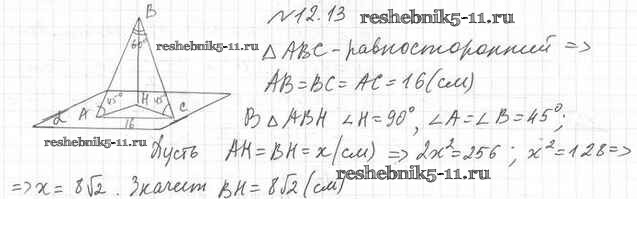 №12.13 reshebnik5-11.ru
B
60°
reshebnik5-11.ru
△ABC - равносторонний =>
AB=BC=AC=16(см)
45° H 45°
α A C
16
В △ABH ∠H=90°, ∠A=∠B=45°;
reshebnik5-11.ru
Пусть AH=BH=x(см) => 2x²=256; x²=128=>
=> x = 8√2. Значит BH=8√2(см)
reshebnik5-11.ru